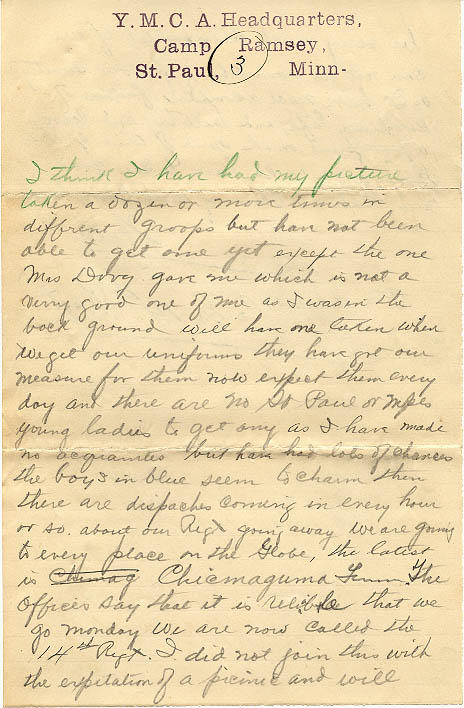 Y. M. C. A. Headquarters,
Camp Ramsey,
St. Paul, Minn-
3
I think I have had my picture
taken a dozen or more times in
different groops but have not been
able to get one yet except the one
Mrs Dovy gave me which is not a
verry good one of me as I was in the
back ground will have one taken when
we get our uniforms they have got our
measure for them now expect them every
day and there are no St Paul or Mpls
young ladies to get any as I have made
no acquainties but have had lots of chances
the boys in blue seem to charm them
there are dispaches coming in every hour
or so about our Regt going away we are going
to every place on the Globe, the latest
is Chicmaguma Tenn. The
Offices say that it is relible that we
go monday We are now called the
14th Regt. I did not join this with
the expitation of a picinic and will